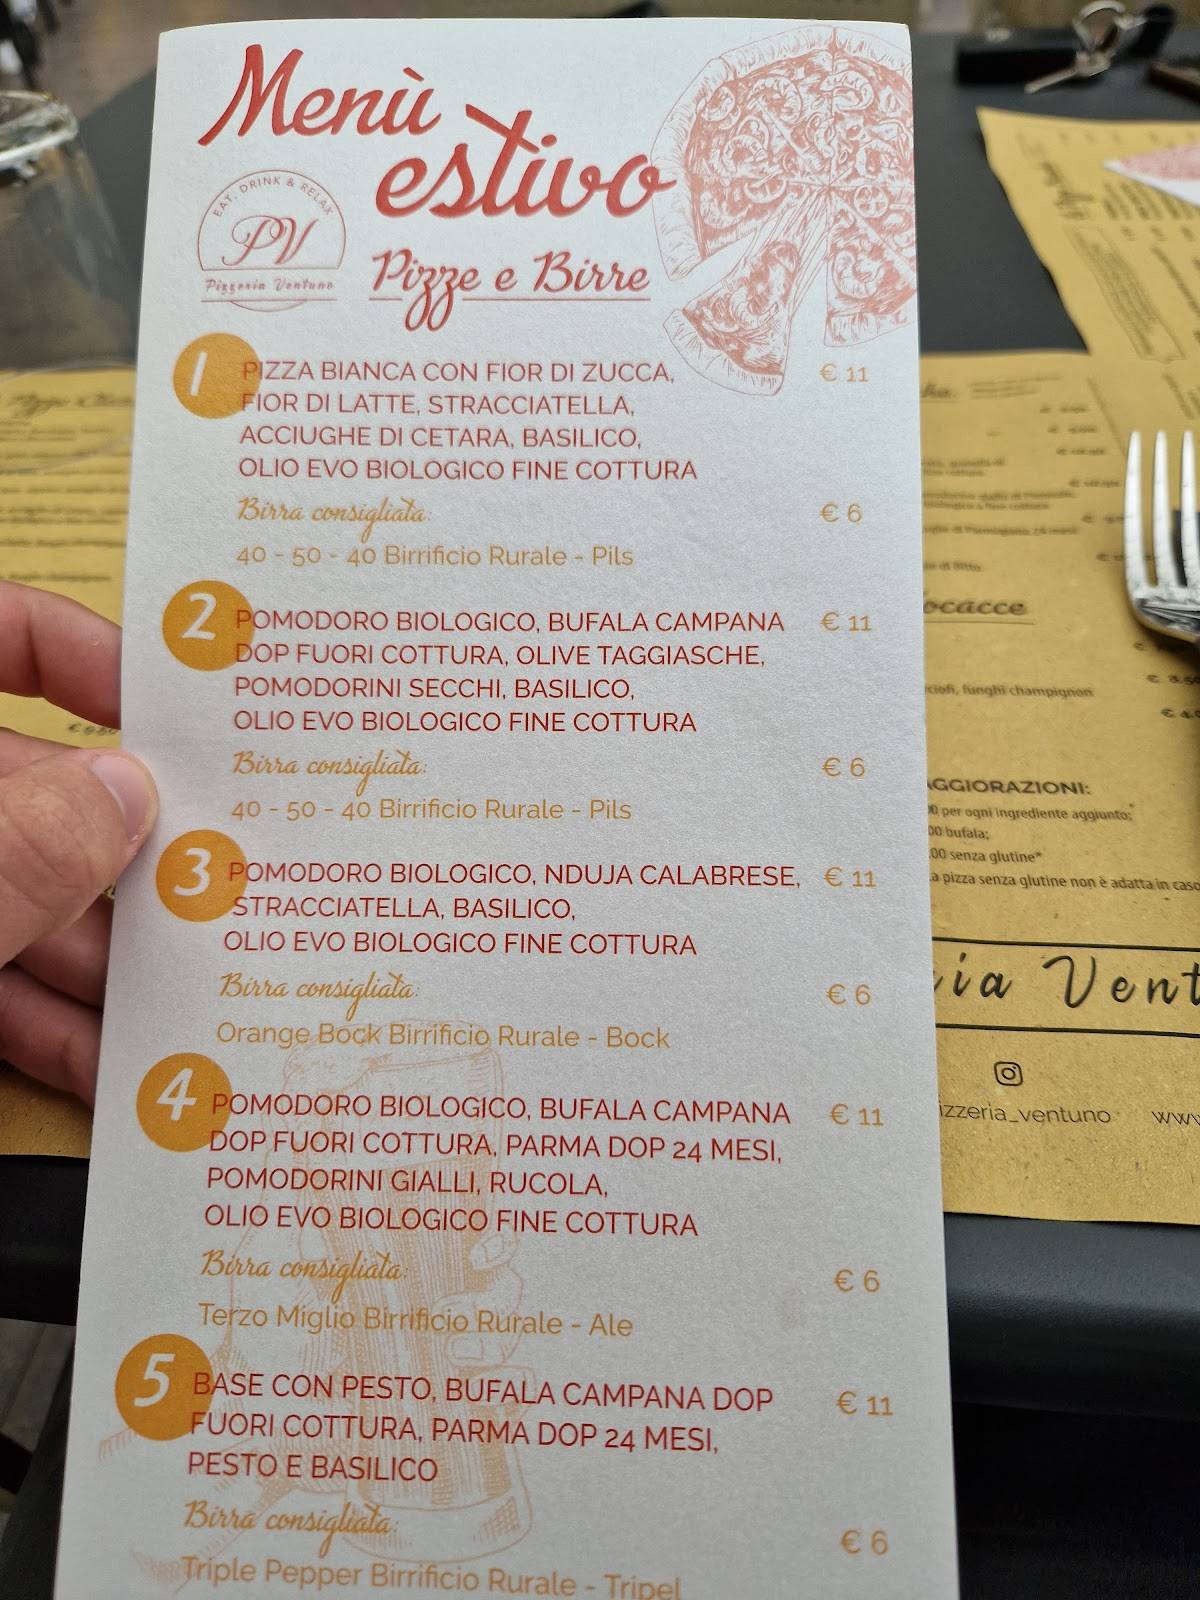 Menù
estivo
EAT, DRINK & RELAX
PV
Pizzeria Ventuno
Pizze e Birre
1
PIZZA BIANCA CON FIOR DI ZUCCA, € 11
FIOR DI LATTE, STRACCIATELLA,
ACCIUGHE DI CETARA, BASILICO,
OLIO EVO BIOLOGICO FINE COTTURA
Birra consigliata: € 6
40 - 50 - 40 Birrificio Rurale - Pils
2
POMODORO BIOLOGICO, BUFALA CAMPANA € 11
DOP FUORI COTTURA, OLIVE TAGGIASCHE,
POMODORINI SECCHI, BASILICO,
OLIO EVO BIOLOGICO FINE COTTURA
Birra consigliata: € 6
40 - 50 - 40 Birrificio Rurale - Pils
3
POMODORO BIOLOGICO, NDUJA CALABRESE, € 11
STRACCIATELLA, BASILICO,
OLIO EVO BIOLOGICO FINE COTTURA
Birra consigliata: € 6
Orange Bock Birrificio Rurale - Bock
4
POMODORO BIOLOGICO, BUFALA CAMPANA € 11
DOP FUORI COTTURA, PARMA DOP 24 MESI,
POMODORINI GIALLI, RUCOLA,
OLIO EVO BIOLOGICO FINE COTTURA
Birra consigliata: € 6
Terzo Miglio Birrificio Rurale - Ale
5
BASE CON PESTO, BUFALA CAMPANA DOP € 11
FUORI COTTURA, PARMA DOP 24 MESI,
PESTO E BASILICO
Birra consigliata: € 6
Triple Pepper Birrificio Rurale - Tripel
ocacce
ciofi, funghi champignon
AGGIORAZIONI:
00 per ogni ingrediente aggiunto;
00 bufala;
.00 senza glutine*
a pizza senza glutine non è adatta in caso
ia Vent
izzeria_ventuno www